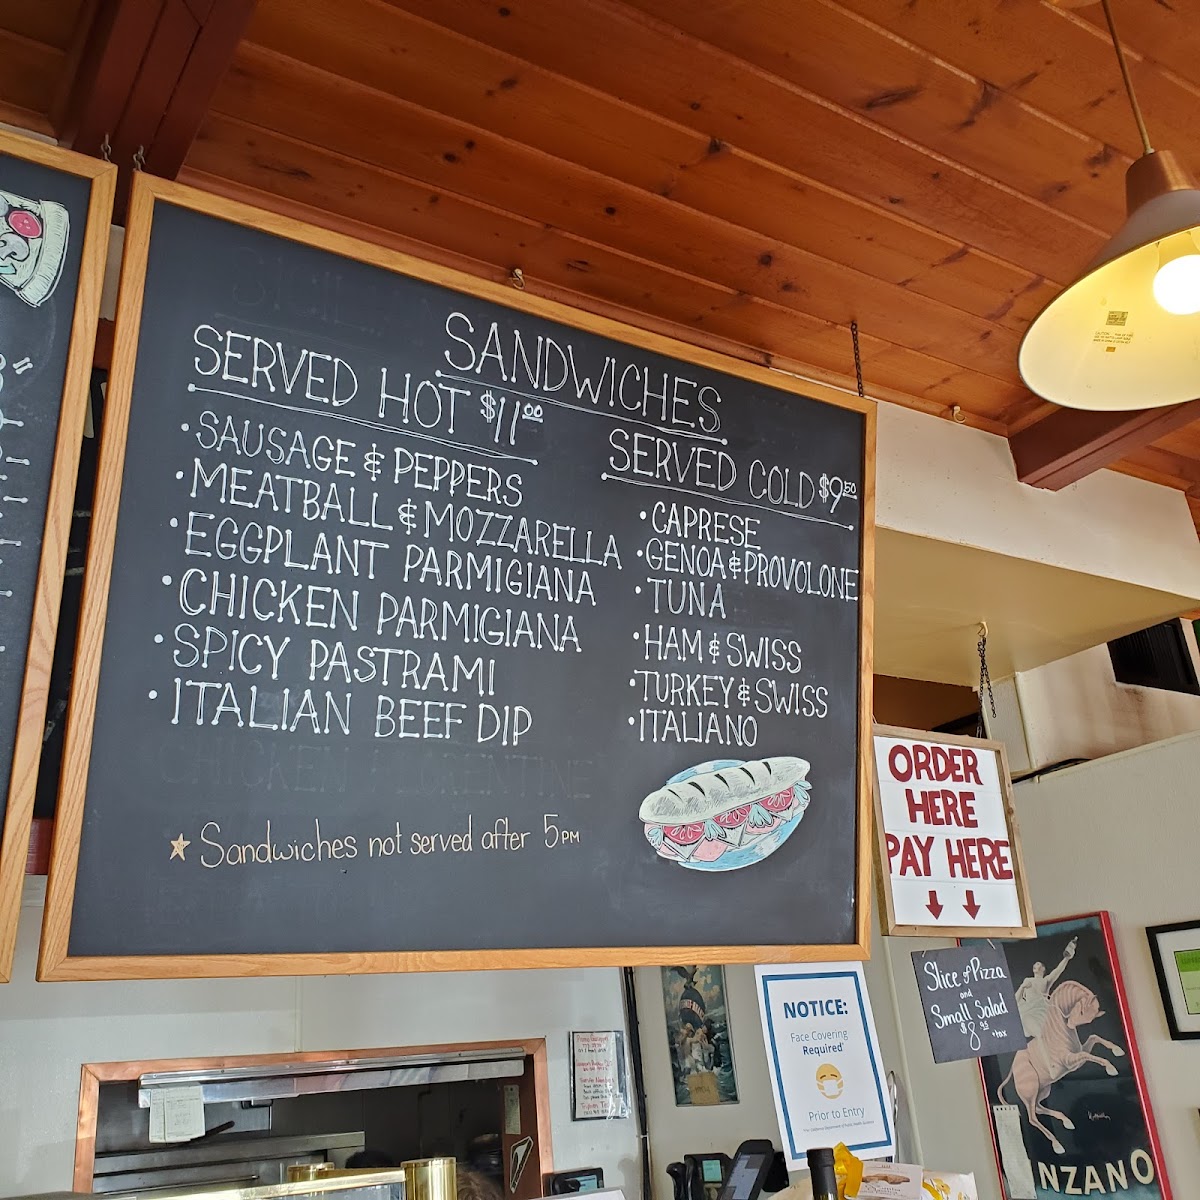 SANDWICHES
SERVED HOT $11.00
• SAUSAGE & PEPPERS
• MEATBALL & MOZZARELLA
• EGGPLANT PARMIGIANA
• CHICKEN PARMIGIANA
• SPICY PASTRAMI
• ITALIAN BEEF DIP
CHICKEN FLORENTINE
☆ Sandwiches not served after 5PM
SERVED COLD $9.50
• CAPRESE
• GENOA & PROVOLONE
• TUNA
• HAM & SWISS
• TURKEY & SWISS
• ITALIANO
ORDER
HERE
PAY HERE
Slice of Pizza
and
Small Salad
$8.95
+tax
NOTICE:
Face Covering
Required*
Prior to Entry
NZANO